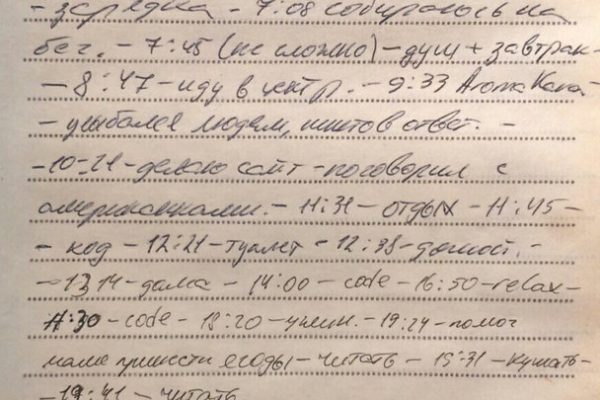 - зарядка - 7:08 собираюсь на
бег. - 7:45 (не сложно) - душ + завтрак -
- 8:47 - иду в центр. - 9:33 Aroma Кава -
- улыбался людям, никто в ответ. -
- 10-21 - делаю сайт - поговорил с
американками. - 11:31 - отдых - 11:45 -
- код - 12:21 - туалет - 12:38 - домой. -
- 13 14 - дома - 14:00 - code - 16:50 - relax -
17:30 - code - 18:20 - ужин. - 19:24 - помог
маме принести ягоды - читать - 19:31 - кушать -
- 19:41 - читать